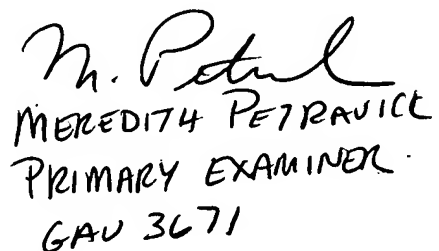 M. Petravick
MEREDITH PETRAVICK
PRIMARY EXAMINER.
GAU 3671